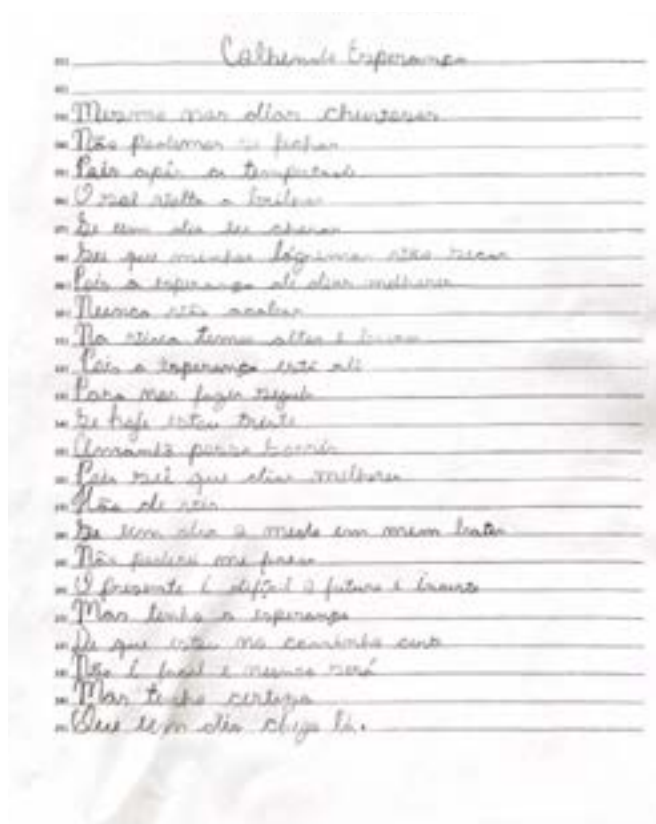 Colhendo Esperança
Mesmo nos dias chuvosos
Não podemos se fechar
Pois após a tempestade
O sol volta a brilhar
Se um dia eu chorar
Sei que minhas lágrimas vão secar
Pois a esperança de dias melhores
Nunca vão acabar
Na vida temos altos e baixos
Pois a esperança está ali
Para nos fazer seguir
Se hoje estou triste
Amanhã posso sorrir
Pois sei que dias melhores
Hão de vir
Se um dia o medo em mim bater
Não poderá me parar
O presente é difícil o futuro é incerto
Mas tenho a esperança
De que estou no caminho certo
Não é fácil e nunca será
Mas tenho certeza
Que um dia chego lá.